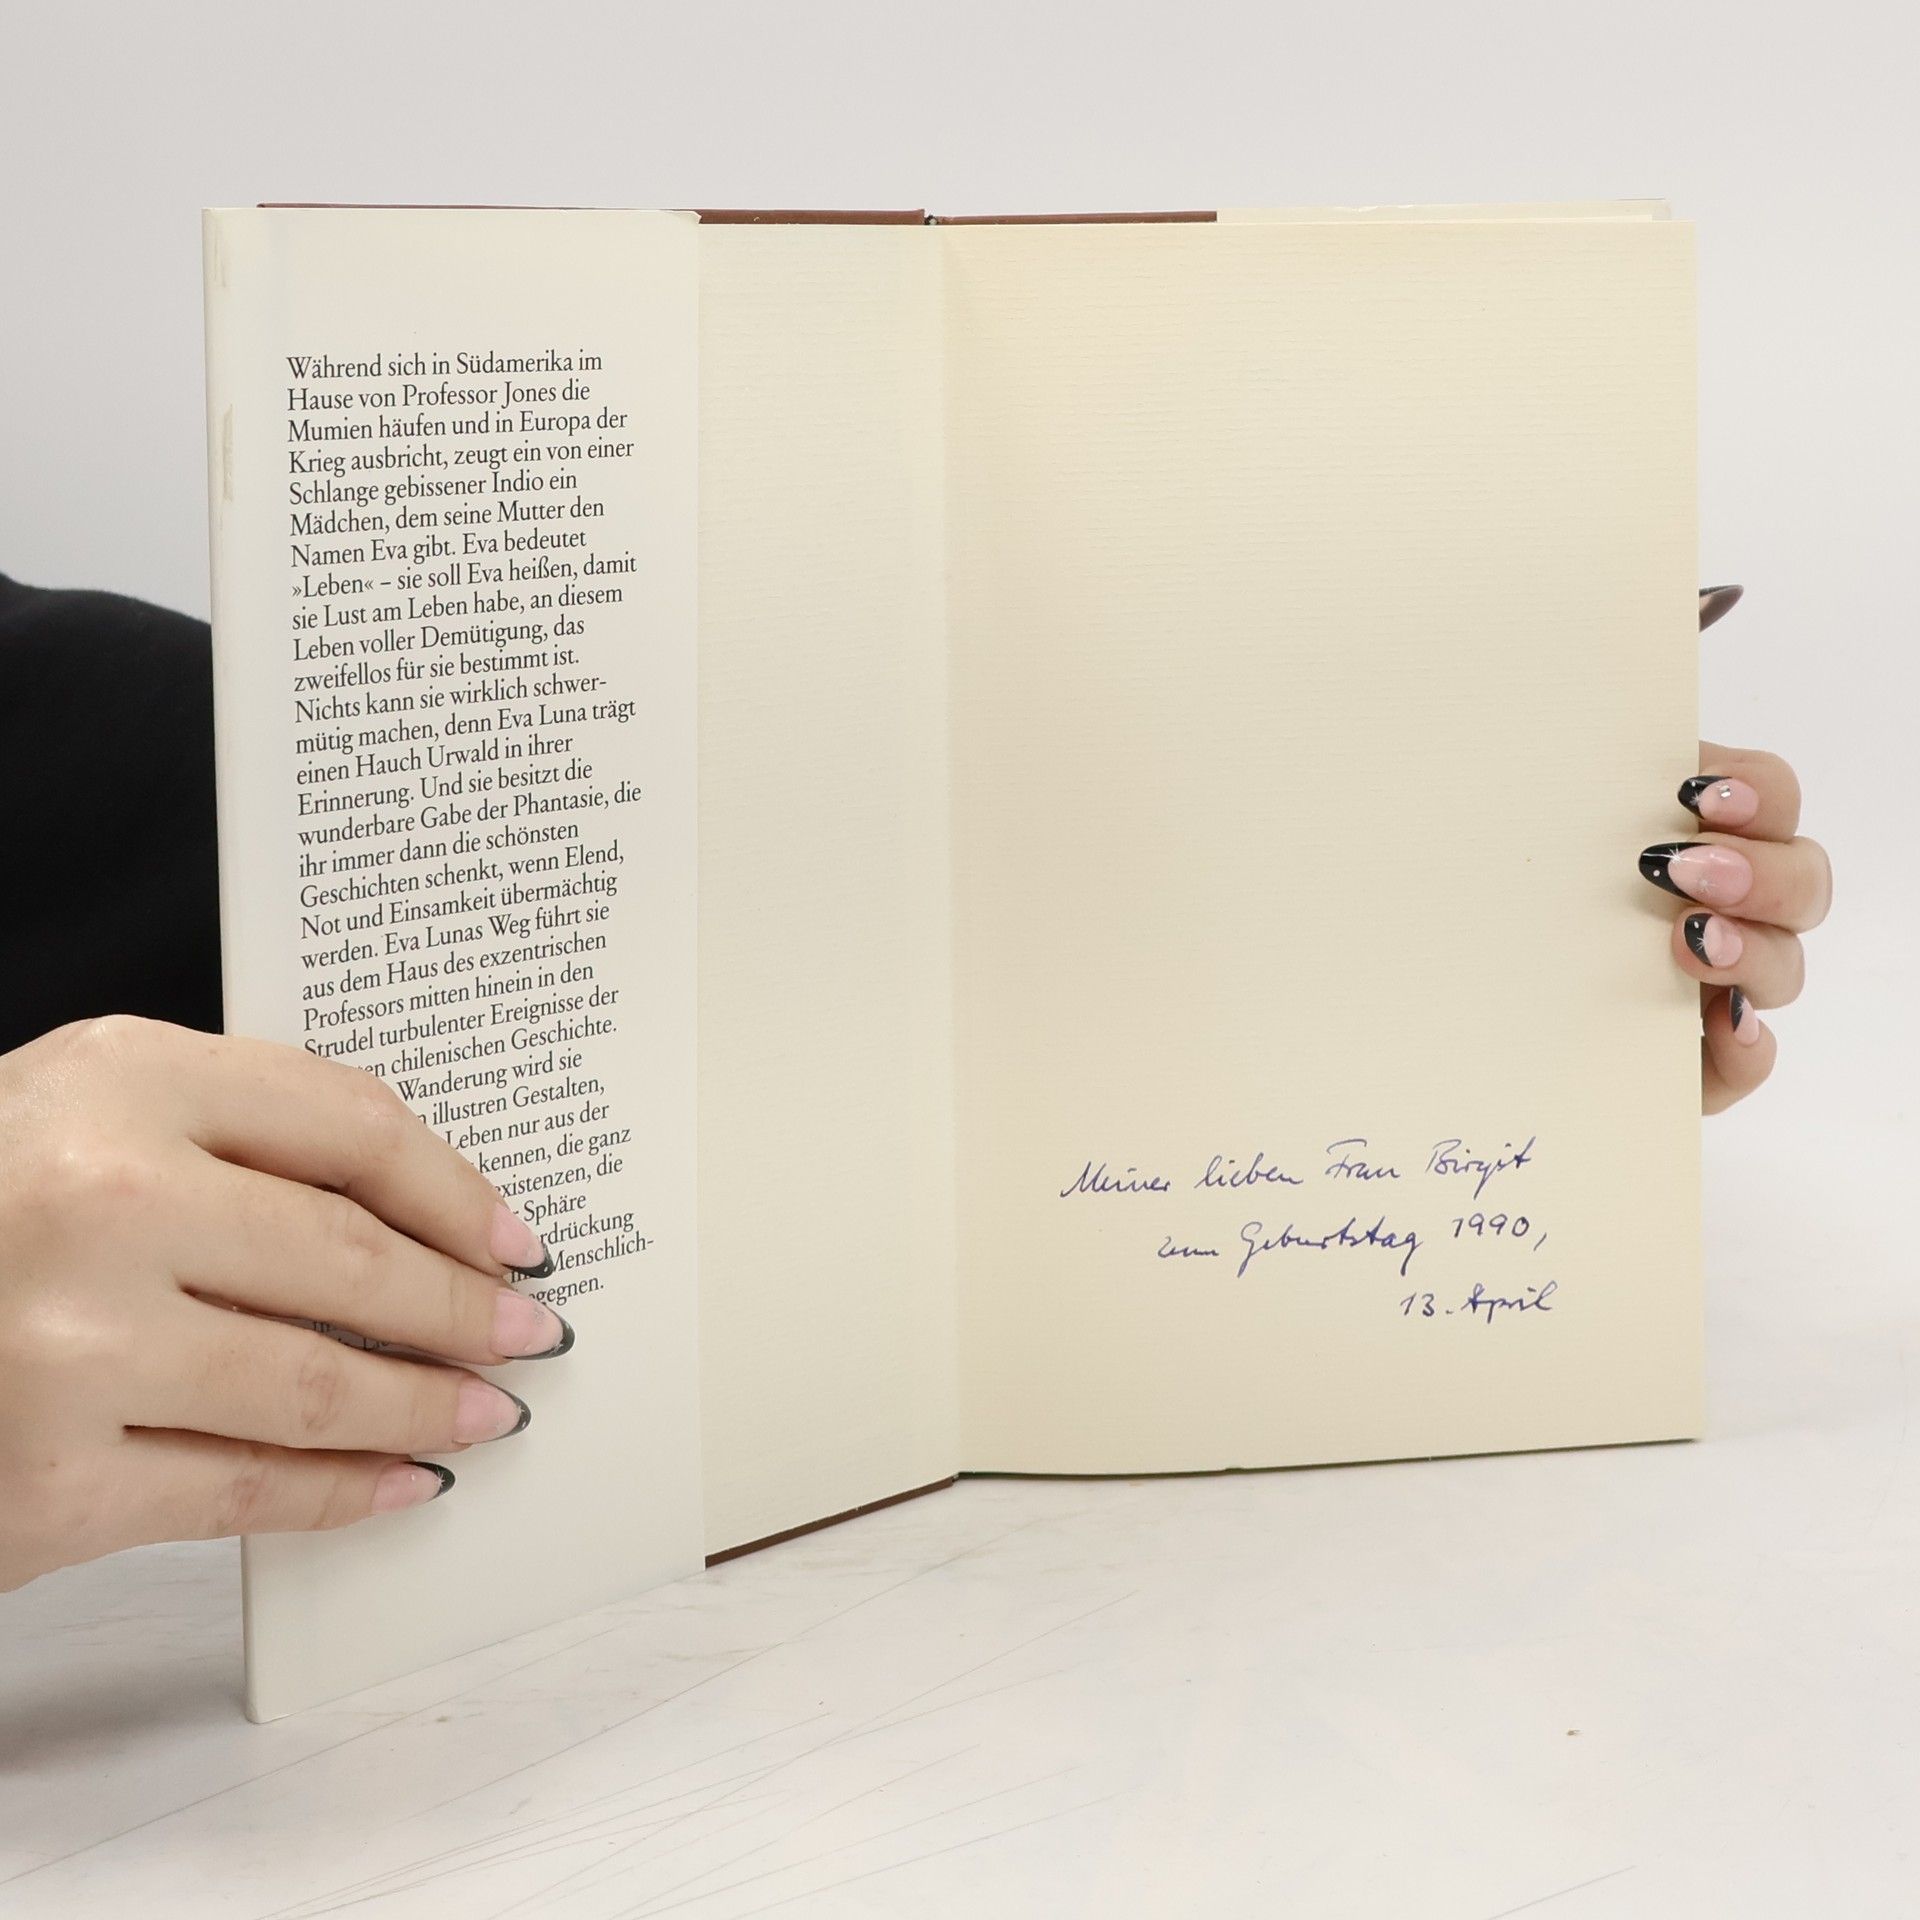 Während sich in Südamerika im
Hause von Professor Jones die
Mumien häufen und in Europa der
Krieg ausbricht, zeugt ein von einer
Schlange gebissener Indio ein
Mädchen, dem seine Mutter den
Namen Eva gibt. Eva bedeutet
»Leben« – sie soll Eva heißen, damit
sie Lust am Leben habe, an diesem
Leben voller Demütigung, das
zweifellos für sie bestimmt ist.
Nichts kann sie wirklich schwer-
mütig machen, denn Eva Luna trägt
einen Hauch Urwald in ihrer
Erinnerung. Und sie besitzt die
wunderbare Gabe der Phantasie, die
ihr immer dann die schönsten
Geschichten schenkt, wenn Elend,
Not und Einsamkeit übermächtig
werden. Eva Lunas Weg führt sie
aus dem Haus des exzentrischen
Professors mitten hinein in den
Strudel turbulenter Ereignisse der
chilenischen Geschichte.
Wanderung wird sie
illustren Gestalten,
Leben nur aus der
kennen, die ganz
existenzen, die
Sphäre
rdrückung
Menschlich-
gegnen.
Meiner lieben Frau Birgit
zum Geburtstag 1990,
13. April